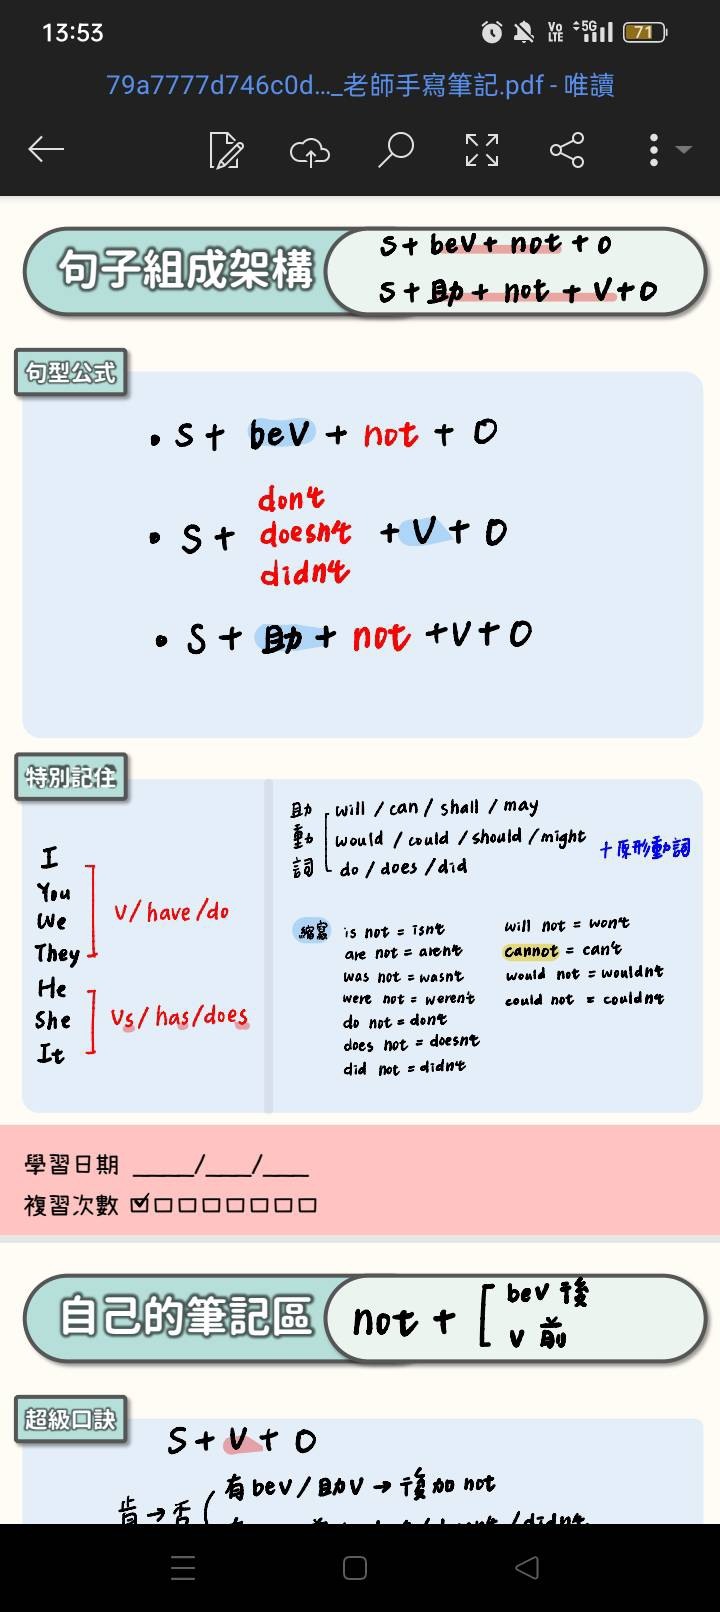 13:53
Vo LTE 5G 71
79a7777d746c0d..._老師手寫筆記.pdf - 唯讀
句子組成架構
S + beV + not + O
S + 助 + not + V + O
句型公式
• S + beV + not + O
don't
• S + doesn't + V + O
didn't
• S + 助 + not + V + O
特別記住
I
You
We
They
V / have / do
He
She
It
Vs / has / does
助動詞
will / can / shall / may
would / could / should / might
do / does / did
+ 原形動詞
縮寫
is not = isn't
are not = aren't
was not = wasn't
were not = weren't
do not = don't
does not = doesn't
did not = didn't
will not = won't
cannot = can't
would not = wouldn't
could not = couldn't
學習日期 ____/___/___
複習次數 ☑□□□□□□□
自己的筆記區
not + [ beV 後
V 前
超級口訣
S + V + O
肯→否
有 beV / 助V → 後加 not